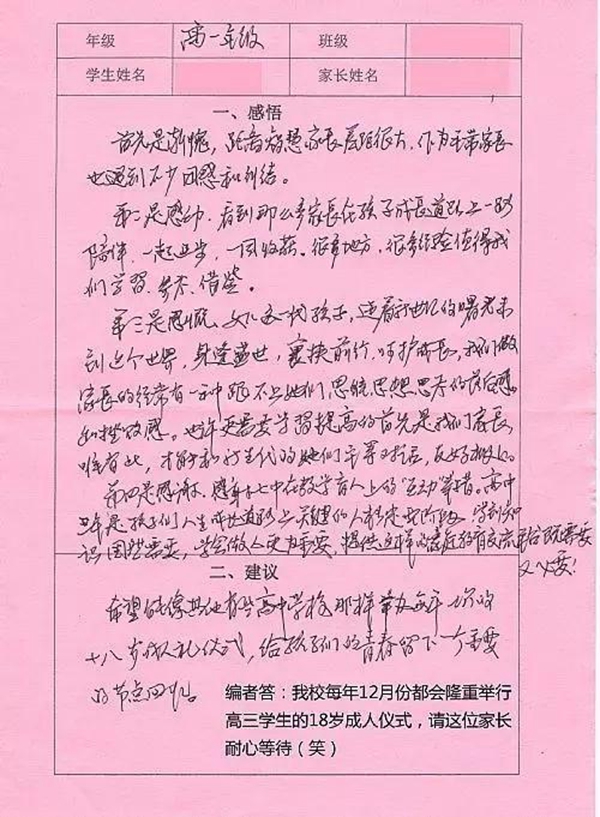 年级 高一年级 班级
学生姓名 家长姓名
一、感悟
首先是惭愧，距离智慧家长差距很大，作为平常家长
也遇到不少困惑和纠结。
第二是感动，看到那么多家长在孩子成长道路上一路
陪伴，一起进步，一同收获。很多地方，很多经验值得我
们学习、参考、借鉴。
第三是感慨，女儿这一代孩子，迎着新世纪的曙光来
到这个世界，身逢盛世，裹挟前行，呵护成长，我们做
家长的经常有一种跟不上她们思维、思想、思考的落后感
和挫败感。也许更需要学习提高的首先是我们家长，
唯有此，才能和新生代的她们平等对话，友好相处。
第四是感谢，感谢七中在教学育人上的“互动”举措。高中
三年是孩子们人生成长道路上关键的人格定型阶段，学到知
识固然重要，学会做人更为重要，提供这样的家庭教育交流平台既需要
又必要！
二、建议
希望能像其他有些高中学校那样举办每年一次的
十八岁成人礼仪式，给孩子们的青春留下一个重要
的节点回忆。
编者答：我校每年12月份都会隆重举行
高三学生的18岁成人仪式，请这位家长
耐心等待（笑）